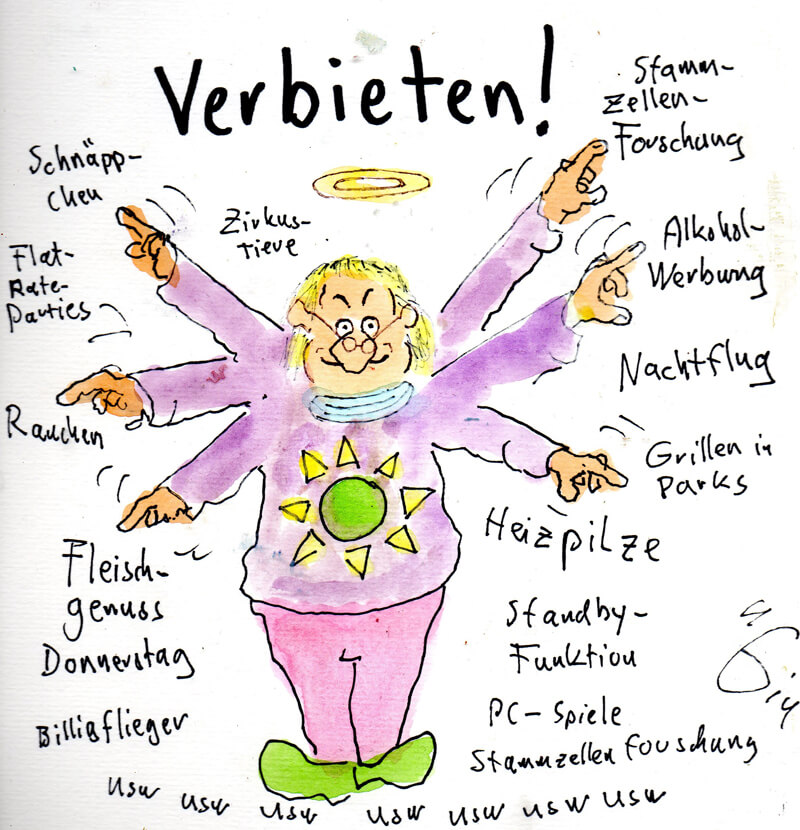 Verbieten!
Stamm-
zellen-
Forschung
Schnäpp-
chen
Zirkus-
tiere
Alkohol-
Werbung
Flat-
Rate-
Parties
Nachtflug
Rauchen
Grillen in
Parks
Heizpilze
Fleisch-
genuss
Donnerstag
Standby-
Funktion
Billigflieger
PC-Spiele
Stammzellen Forschung
usw usw usw usw usw usw usw